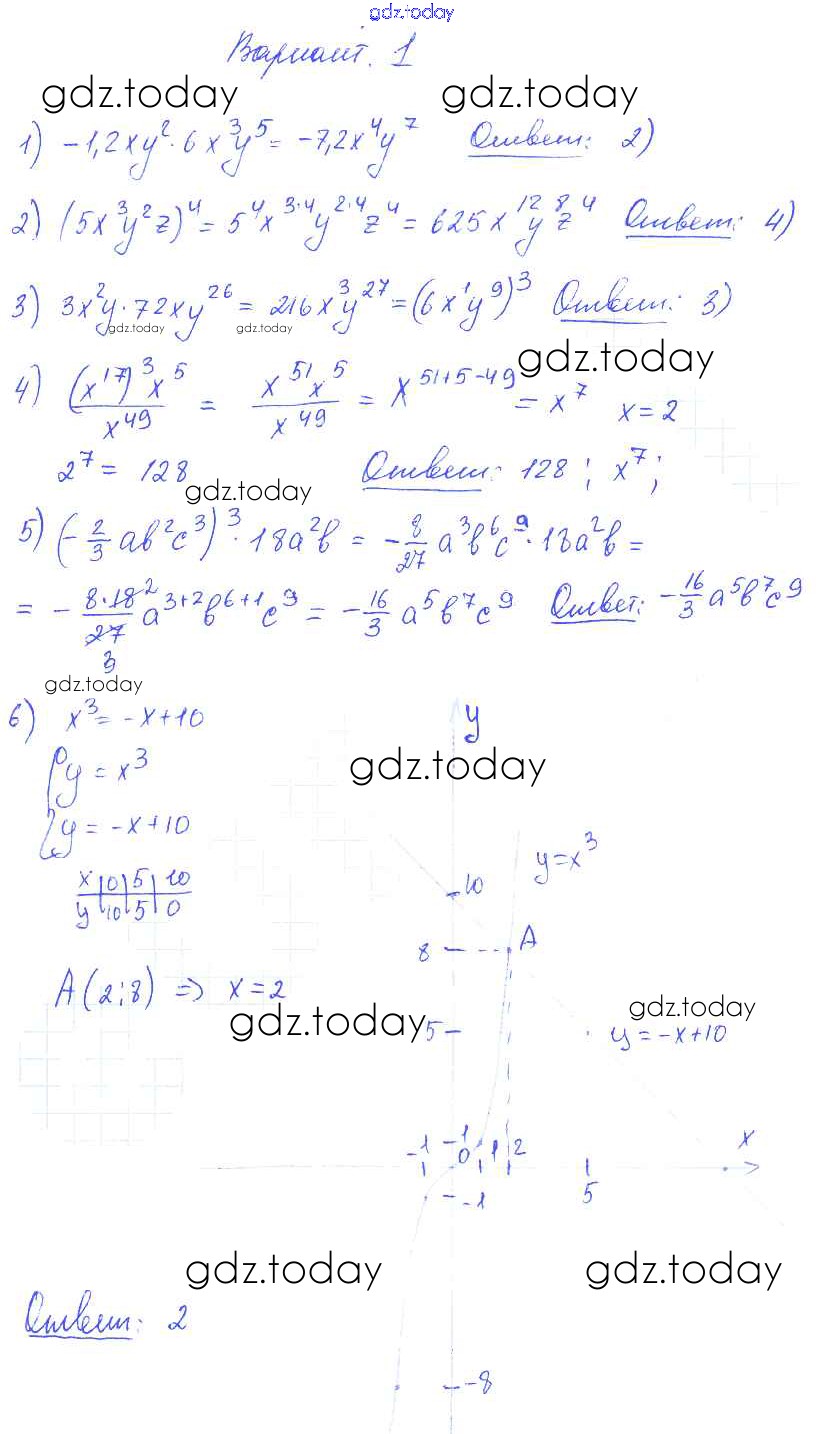 gdz.today
Вариант. 1
gdz.today gdz.today
1) -1,2xy²·6x³y⁵ = -7,2x⁴y⁷ Ответ: 2)
2) (5x³y²z)⁴ = 5⁴x³·⁴y²·⁴z⁴ = 625x¹²y⁸z⁴ Ответ: 4)
3) 3x²y·72xy²⁶ = 216x³y²⁷ = (6x¹y⁹)³ Ответ: 3)
gdz.today gdz.today
gdz.today
4) (x¹⁷)³x⁵/x⁴⁹ = x⁵¹x⁵/x⁴⁹ = x⁵¹⁺⁵⁻⁴⁹ = x⁷ x=2
2⁷ = 128 Ответ: 128; x⁷;
gdz.today
5) (-2/3 ab²c³)³·18a²b = -8/27 a³b⁶c⁹·18a²b =
= -8·18²/27 3 a³⁺²b⁶⁺¹c⁹ = -16/3 a⁵b⁷c⁹ Ответ: -16/3 a⁵b⁷c⁹
gdz.today
6) x³ = -x+10
y
gdz.today
{y = x³
{y = -x+10
y=x³
x|0|5|10
y|10|5|0
10
8
A
A(2;8) => x=2
gdz.today
gdz.today
5
y = -x+10
x
-1 -1 0 1 2
5
-1
gdz.today gdz.today
Ответ: 2
-8